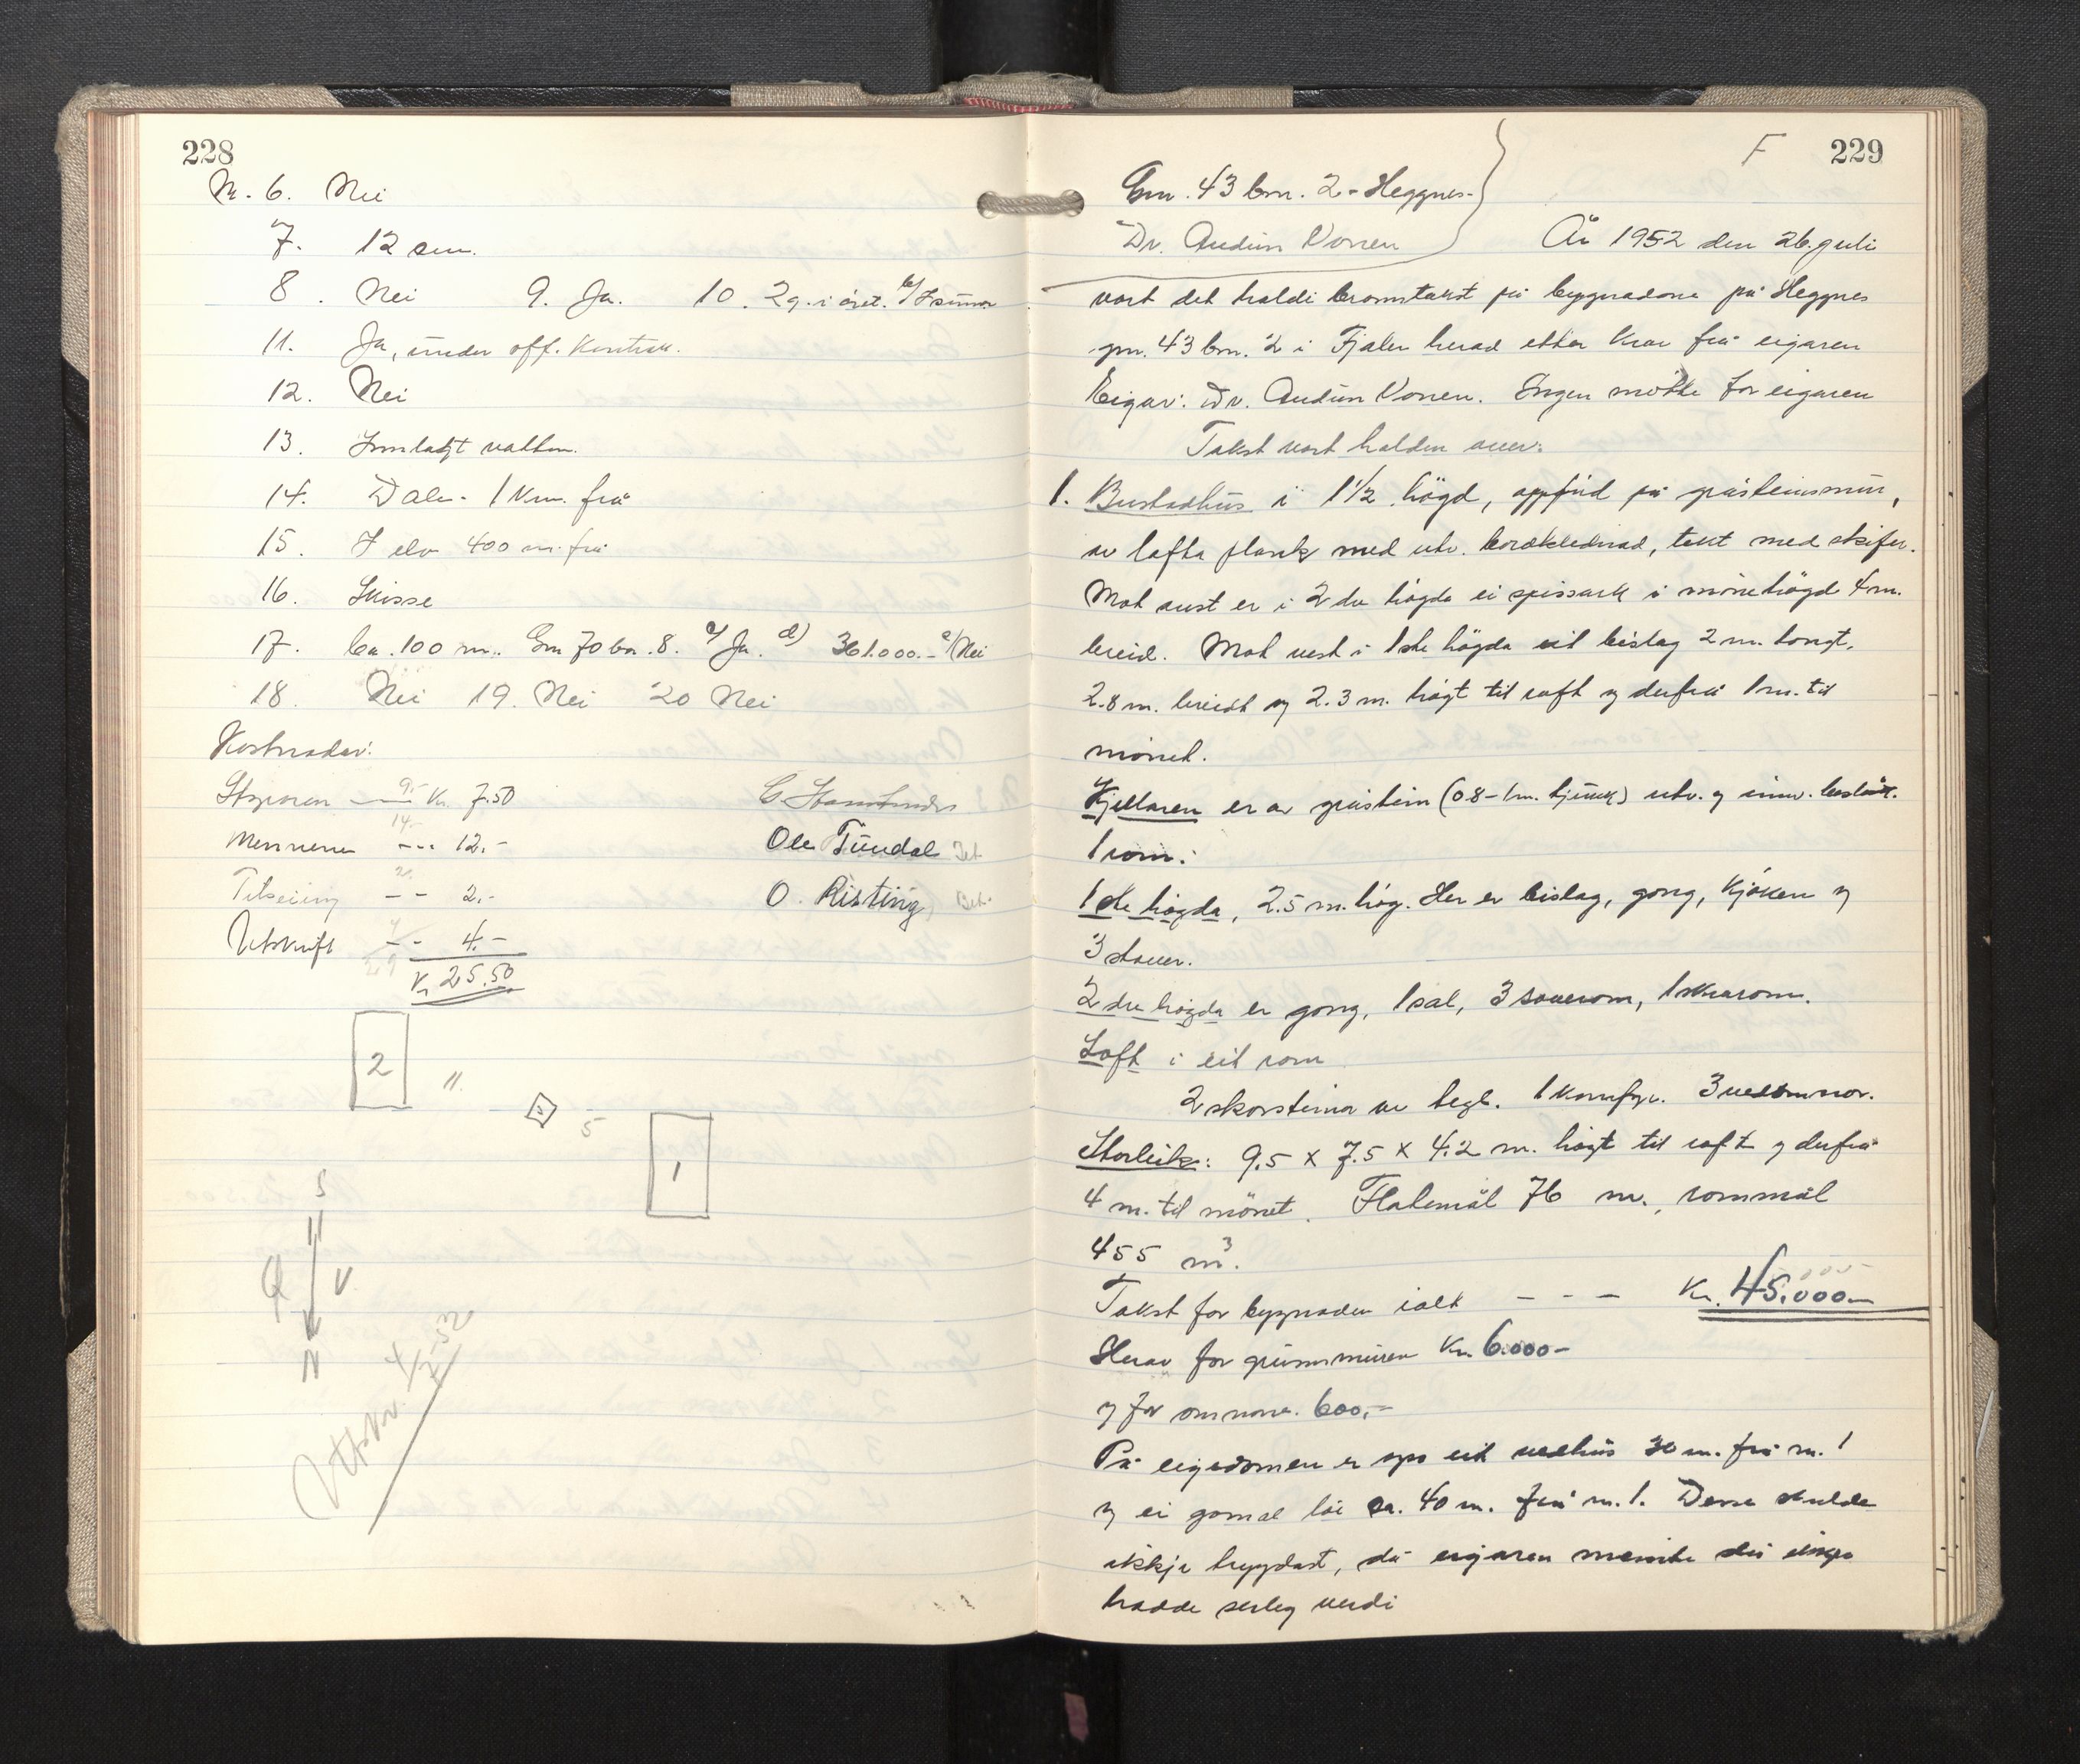 228
Nr. 6. Nei
7. 12 cm.
8. Nei 9. Ja. 10. 2 g. i året. b/
11. Ja, under off. kontroll.
12. Nei
13. Innlagt vatten.
14. Dale - 1 km. frå
15. I elv 400 m. frå
16. Skisse
17. Ca. 100 m. Gnr 70 bn. 8. c/ Ja. d) 361.000.- e/ Nei
18. Nei 19. Nei 20 Nei
Kostnader:
Styraren — 9.- Kr. 7.50
Mennene 14.- --- 12.-
Tilseiing -- 2.-
Utskrift -- 4.-
Kr 25.50
Ole Tündal
O. Risting
2
11.
5
1
S
V
N
Utskr. 4/7-52
F 229
Gnr. 43 bnr. 2 - Heggnes -
Dr. Audün Vonen År 1952 den 26. juli
vart det haldi branntakst på bygnadane på Heggnes
gnr. 43 bnr. 2 i Fjaler herad etter krav frå eigaren
Eigar: Dr. Audün Vonen. Ingen møtte for eigaren
Takst vart halden over:
1. Bustadhüs i 1 1/2 högd, oppförd på gråsteinsmür,
av lafta plank med utv. bordklednad, tekt med skifer.
Mot aust er i 2 dre högda ei spissark i mönehögd 4 m.
breid. Mot vest i 1ste högda eit bislag 2 m. langt,
2.8 m. breidt og 2.3 m. högt til raft og derfrå 1 m. til
mönet.
Kjellaren er av gråstein (0.8-1 m. tjukk) utv. og innv.
1 rom.
1 ste högda, 2.5 m. høg. Her er bislag, gong, kjöken og
3 stover.
2 dre högda er gong, 1 sal, 3 soverom, 1 skrårom.
Loft i eit rom
2 skorsteinar av tegl. 1 komfyr. 3 vedomnar.
Storleik: 9.5 x 7.5 x 4.2 m. högt til raft og derfrå
4 m. til mönet. Flatemål 76 m., rommål
455 m3.
Takst for bygnaden ialt - - - Kr. 45.000.-
Herav for grunnmüren Kr. 6.000-
og for omnane. 600,-
På eigedomen er ogso eit vedhüs 30 m. frå nr. 1
og ei gomal löe ca. 40 m. frå nr. 1. Desse skulde
ikkje trygdast, då eigaren meinte dei inga
hadde serleg verdi